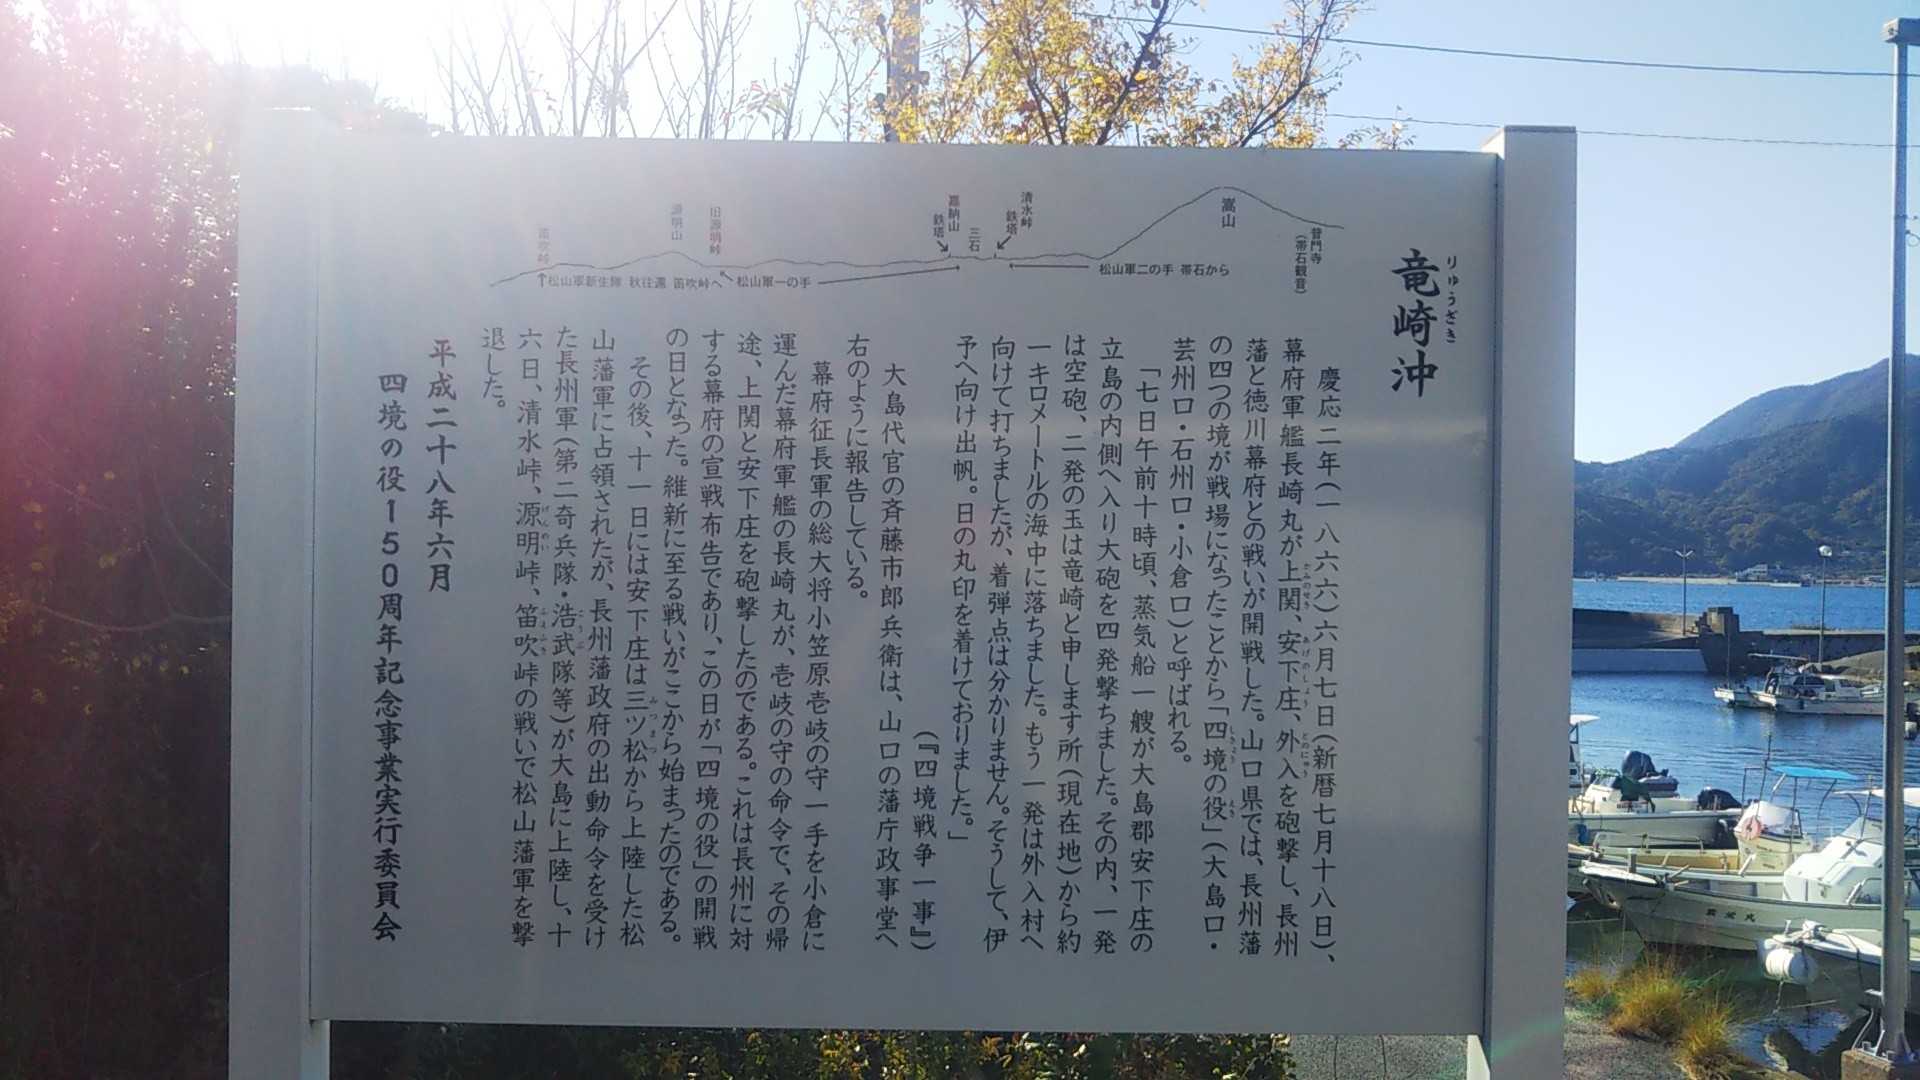 竜崎沖
りゅうざき
普門寺
(帯石観音)
嵩山
清水峠
鉄塔
三石
嘉納山
鉄塔
旧源明峠
源明山
笛吹峠
松山軍二の手 帯石から
松山軍一の手
松山軍新生隊 秋往還 笛吹峠へ
慶応二年(一八六六)六月七日(新暦七月十八日)、
幕府軍艦長崎丸が上関、安下庄、外入を砲撃し、長州
かみのせき あげのしょう とのにゅう
藩と徳川幕府との戦いが開戦した。山口県では、長州藩
の四つの境が戦場になったことから「四境の役」(大島口・
しきょう えき
芸州口・石州口・小倉口)と呼ばれる。
「七日午前十時頃、蒸気船一艘が大島郡安下庄の
立島の内側へ入り大砲を四発撃ちました。その内、一発
は空砲、二発の玉は竜崎と申します所(現在地)から約
一キロメートルの海中に落ちました。もう一発は外入村へ
向けて打ちましたが、着弾点は分かりません。そうして、伊
予へ向け出帆。日の丸印を着けておりました。」
(『四境戦争一事』)
大島代官の斉藤市郎兵衛は、山口の藩庁政事堂へ
右のように報告している。
幕府征長軍の総大将小笠原壱岐の守一手を小倉に
運んだ幕府軍艦の長崎丸が、壱岐の守の命令で、その帰
途、上関と安下庄を砲撃したのである。これは長州に対
する幕府の宣戦布告であり、この日が「四境の役」の開戦
の日となった。維新に至る戦いがここから始まったのである。
その後、十一日には安下庄は三ツ松から上陸した松
みつまつ
山藩軍に占領されたが、長州藩政府の出動命令を受け
た長州軍(第二奇兵隊・浩武隊等)が大島に上陸し、十
こうぶ
六日、清水峠、源明峠、笛吹峠の戦いで松山藩軍を撃
げんめい ふえふき
退した。
平成二十八年六月
四境の役150周年記念事業実行委員会